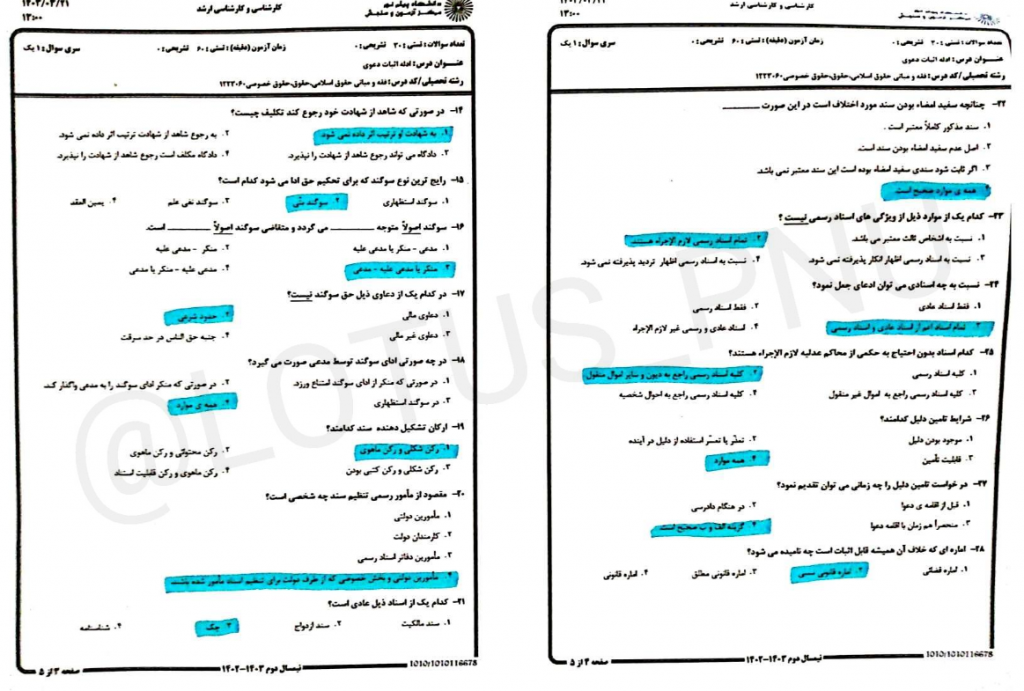 ۱۴۰۳/۰۳/۲۱
۱۳:۰۰
کارشناسی و کارشناسی ارشد
دانشگاه پیام نور
مرکز آزمون و سنجش
تعداد سوالات: تستی: ۳۰ تشریحی: ۰
زمان آزمون (دقیقه): تستی: ۶۰ تشریحی: ۰
سری سوال: ۱ یک
عنوان درس: ادله اثبات دعوی
رشته تحصیلی/کد درس: فقه و مبانی حقوق اسلامی،حقوق،حقوق خصوصی ۱۲۲۳۰۶۰
۱۴- در صورتی که شاهد از شهادت خود رجوع کند تکلیف چیست؟
۱. به شهادت او ترتیب اثر داده نمی شود.
۲. به رجوع شاهد از شهادت ترتیب اثر داده نمی شود.
۳. دادگاه می تواند رجوع شاهد از شهادت را نپذیرد.
۴. دادگاه مکلف است رجوع شاهد از شهادت را نپذیرد.
۱۵- رایج ترین نوع سوگند که برای تحکیم حق ادا می شود کدام است؟
۱. سوگند استظهاری
۲. سوگند بتّی
۳. سوگند نفی علم
۴. یمین العقد
۱۶- سوگند اصولاً متوجه ________ می گردد و متقاضی سوگند اصولاً ________ است.
۱. مدعی - منکر یا مدعی علیه
۲. منکر - مدعی علیه
۳. منکر یا مدعی علیه - مدعی
۴. مدعی علیه - منکر یا مدعی
۱۷- در کدام یک از دعاوی ذیل حق سوگند نیست؟
۱. دعاوی مالی
۲. حدود شرعی
۳. دعاوی غیر مالی
۴. جنبه حق الناس در حد سرقت
۱۸- در چه صورتی ادای سوگند توسط مدعی صورت می گیرد؟
۱. در صورتی که منکر از ادای سوگند امتناع ورزد.
۲. در صورتی که منکر ادای سوگند را به مدعی واگذار کند.
۳. در سوگند استظهاری
۴. همه ی موارد
۱۹- ارکان تشکیل دهنده سند کدامند؟
۱. رکن شکلی و رکن ماهوی
۲. رکن محتوائی و رکن ماهوی
۳. رکن شکلی و رکن کتبی بودن
۴. رکن ماهوی و رکن قابلیت استناد
۲۰- مقصود از مأمور رسمی تنظیم سند چه شخصی است؟
۱. مأمورین دولتی
۲. کارمندان دولت
۳. مأمورین دفاتر اسناد رسمی
۴. مأمورین دولتی و بخش خصوصی که از طرف دولت برای تنظیم اسناد مأمور شده باشند.
۲۱- کدام یک از اسناد ذیل عادی است؟
۱. سند مالکیت
۲. سند ازدواج
۳. چک
۴. شناسنامه
1010/1010116678
نیمسال دوم ۱۴۰۳-۱۴۰۲
صفحه ۳ از ۵
۱۳:۰۰
کارشناسی و کارشناسی ارشد
مرکز آزمون و سنجش
تعداد سوالات: تستی: ۳۰ تشریحی: ۰
زمان آزمون (دقیقه): تستی: ۶۰ تشریحی: ۰
سری سوال: ۱ یک
عنوان درس: ادله اثبات دعوی
رشته تحصیلی/کد درس: فقه و مبانی حقوق اسلامی،حقوق،حقوق خصوصی ۱۲۲۳۰۶۰
۲۲- چنانچه سفید امضاء بودن سند مورد اختلاف است در این صورت ________
۱. سند مذکور کاملاً معتبر است .
۲. اصل عدم سفید امضاء بودن سند است.
۳. اگر ثابت شود سندی سفید امضاء بوده است این سند معتبر نمی باشد.
۴. همه ی موارد صحیح است.
۲۳- کدام یک از موارد ذیل از ویژگی های اسناد رسمی نیست ؟
۱. نسبت به اشخاص ثالث معتبر می باشد.
۲. تمام اسناد رسمی لازم الإجراء هستند.
۳. نسبت به اسناد رسمی اظهار انکار پذیرفته نمی شود.
۴. نسبت به اسناد رسمی اظهار تردید پذیرفته نمی شود.
۲۴- نسبت به چه اسنادی می توان ادعای جعل نمود؟
۱. فقط اسناد عادی
۲. فقط اسناد رسمی
۳. تمام اسناد اعم از اسناد عادی و اسناد رسمی
۴. اسناد عادی و رسمی غیر لازم الإجراء
۲۵- کدام اسناد بدون احتیاج به حکمی از محاکم عدلیه لازم الإجراء هستند؟
۱. کلیه اسناد رسمی
۲. کلیه اسناد رسمی راجع به دیون و سایر اموال منقول
۳. کلیه اسناد رسمی راجع به اموال غیر منقول
۴. کلیه اسناد رسمی راجع به احوال شخصیه
۲۶- شرایط تامین دلیل کدامند؟
۱. موجود بودن دلیل
۲. تعذّر یا تعسّر استفاده از دلیل در آینده
۳. قابلیت تأمین
۴. همه موارد
۲۷- در خواست تامین دلیل را چه زمانی می توان تقدیم نمود؟
۱. قبل از اقامه ی دعوا
۲. در هنگام دادرسی
۳. منحصراً هم زمان با اقامه دعوا
۴. گزینه الف و ب صحیح است.
۲۸- اماره ای که خلاف آن همیشه قابل اثبات است چه نامیده می شود؟
۱. اماره قضائی
۲. اماره قانونی نسبی
۳. اماره قانونی مطلق
۴. اماره قانونی
1010/1010116678
نیمسال دوم ۱۴۰۳-۱۴۰۲
صفحه ۴ از ۵
@LOTUS_PNU